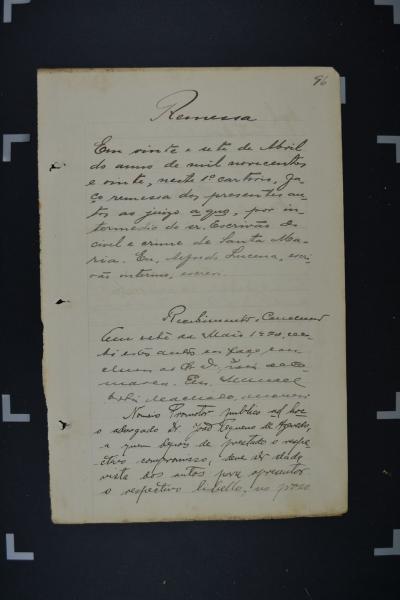 96
Remessa
Em vinte e sete de Abril
do anno de mil novecentos
e vinte, neste 1º cartorio, fa-
ço remessa dos presentes au-
tos ao juizo a quo, por in-
termedio do sr. Escrivão do
civel e crime de Santa Ma-
ria. Eu, Alfredo Lucena, escri-
vão interino, escrevi.
Recebimento, Conclusão
Em sete de Maio 1920, rece-
bi estes autos e os faço con-
clusos ao Dr. Juiz de Co-
marca. Eu, Manoel
Machado,
Nomeio Promotor publico ad hoc
o advogado Dr. João de Azevedo,
a quem depois de prestado o respe-
ctivo compromisso, deve ser dada
vista dos autos para apresentar
o respectivo libello, no prazo